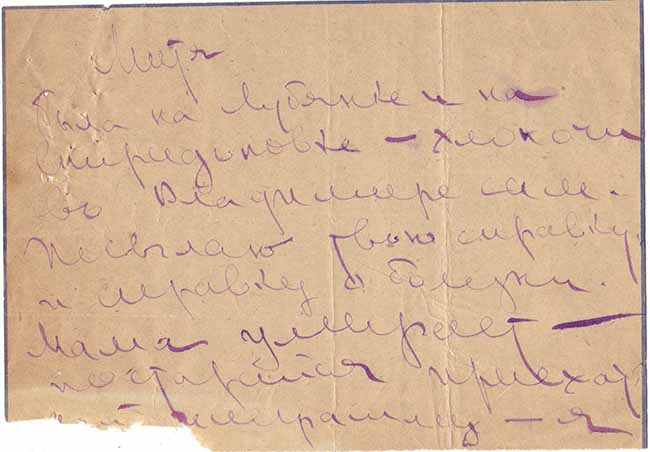 Митя
Была на Лубянке и на
Спиридоновке – хлопочи
въ Владимире сам.
Посылаю твою справку
и справку о болезни.
Мама умирает –
постарайся приехать
– я